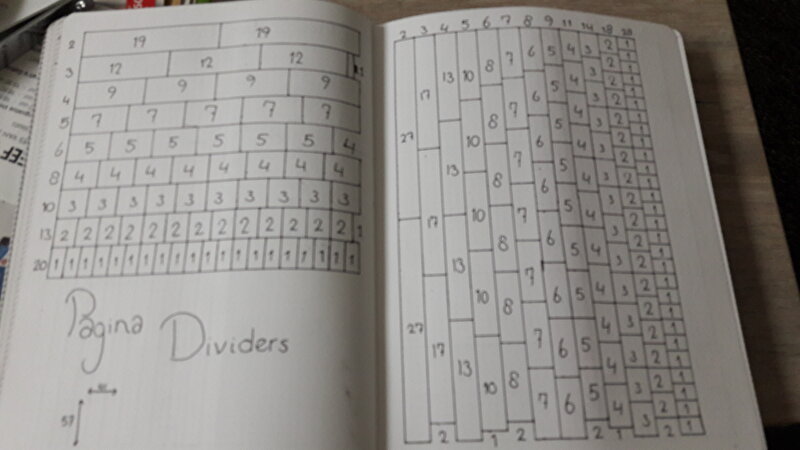 2 19 19
3 12 12 12 1
4 9 9 9 9
5 7 7 7 7 7
6 5 5 5 5 5 5 4
8 4 4 4 4 4 4 4 4
10 3 3 3 3 3 3 3 3 3 3
13 2 2 2 2 2 2 2 2 2 2 2 2 2 1
20 1 1 1 1 1 1 1 1 1 1 1 1 1 1 1 1 1 1 1
Pagina
Dividers
57
2 3 4 5 6 7 8 9 11 14 18 28
27 27
17 17 17 2
13 13 13 13
10 10 10 10 10 1
8 8 8 8 8 8 2
7 7 7 7 7 7 7
6 6 6 6 6 6 6 6
5 5 5 5 5 5 5 5 5 2